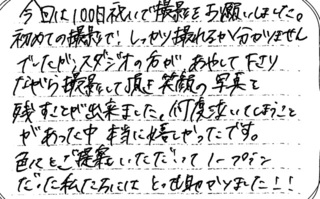 今回は100日祝いで撮影をお願いしました。
初めての撮影で、しっかり撮れるか分かりません
でしたが、スタジオの方が、あやして下さり
ながら撮影して頂き笑顔の写真を
残すことが出来ました。何度も泣いてしまうこと
があった中 本当に嬉しかったです。
色々とご提案いただいて ノープラン
だった私たちには とても助かりました!!